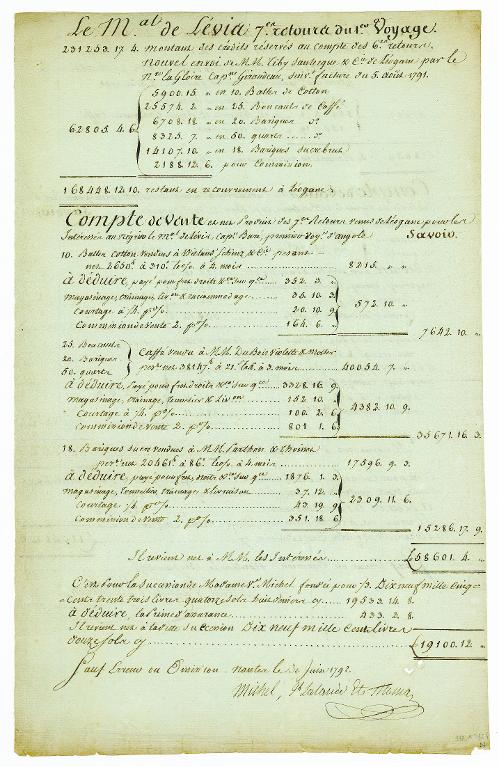 Le M.al de Lévis 7.en retours du 1er Voyage.
231253. 17. 4. montant des crédits réservés au compte des 6.en retours.
nouvel envoi de M.M. & Cie de Léogane par le
N.re la Gloire Cap.ne Giraudeau, suiv.t facture du 5. Août 1791.
5900. 15. " en 10. Balles de Cotton
25574. 2. " en 25. Boucauts de Caffé
6708. 18. " en 20. Bariques d.o
62805. 4. 6.
8325. 7. " en 50. quarts ...... d.o
14107. 10. " en 18. Bariques sucre brut
2188. 12. 6. pour Commission.
168448. 12. 10. restant en recouvrement à Léogane.
Compte de Vente et net Produit des 7.en Retours venus de Léogane pour les
Intéressés au Négrier le M.al de Lévis, Cap.ne Baré, premier voy.e d'angole Savoir.
10. Balles cotton vendus à & Cie pesant
net 2650 à 310 les % à 2 mois 8215. " "
à déduire, payé pour fret, droits 352. 3. "
magasinage, livon & racommodage 35. 10. 3.
Courtage à ¼ p% 20. 10. 9. 572. 10. "
Commission de Vente 2. p% 164. 6. "
7642. 10. "
25. Boucauts
20. Bariques Caffé vendu à M.M. DuBois Violette &
50. quarts net 38147 à 21 à 3. mois 40054. 7. "
à déduire, payé pour fret droits 3328. 16. 9.
magasinage, & Livon 152. 10. "
Courtage à ¼ p% 100. 2. 6. 4382. 10. 9.
Commission de Vente 2. p% 801. 1. 6.
35671. 16. 3.
18. Bariques sucre vendues à M.M. &
net 20461 à 86 les % à 4 mois 17596. 9. 3.
à déduire, payé pour fret, droits 1876. 1. 3.
magasinage, & livraison 37. 12. "
Courtage ¼ p% 43. 19. 9. 2309. 11. 6.
Commission de Vente 2. p% 351. 18. 6.
15286. 17. 9.
Il revient net à M.M. les Intéressés £58601. 4. "
C'est Pour la Succession de Madame V.e Michel fondée pour ⅓. Dix neuf mille cinq
Cent trente trois Livres quatorze sols huit deniers cy 19533. 14. 8.
à déduire, la Prime d'assurance 433. 2. 8.
Il revient net à la dite Succession Dix neuf mille Cent livres
douze sols cy £19100. 12. "
Sauf Erreur ou Omission. Nantes le Juin 1792.
Michel,